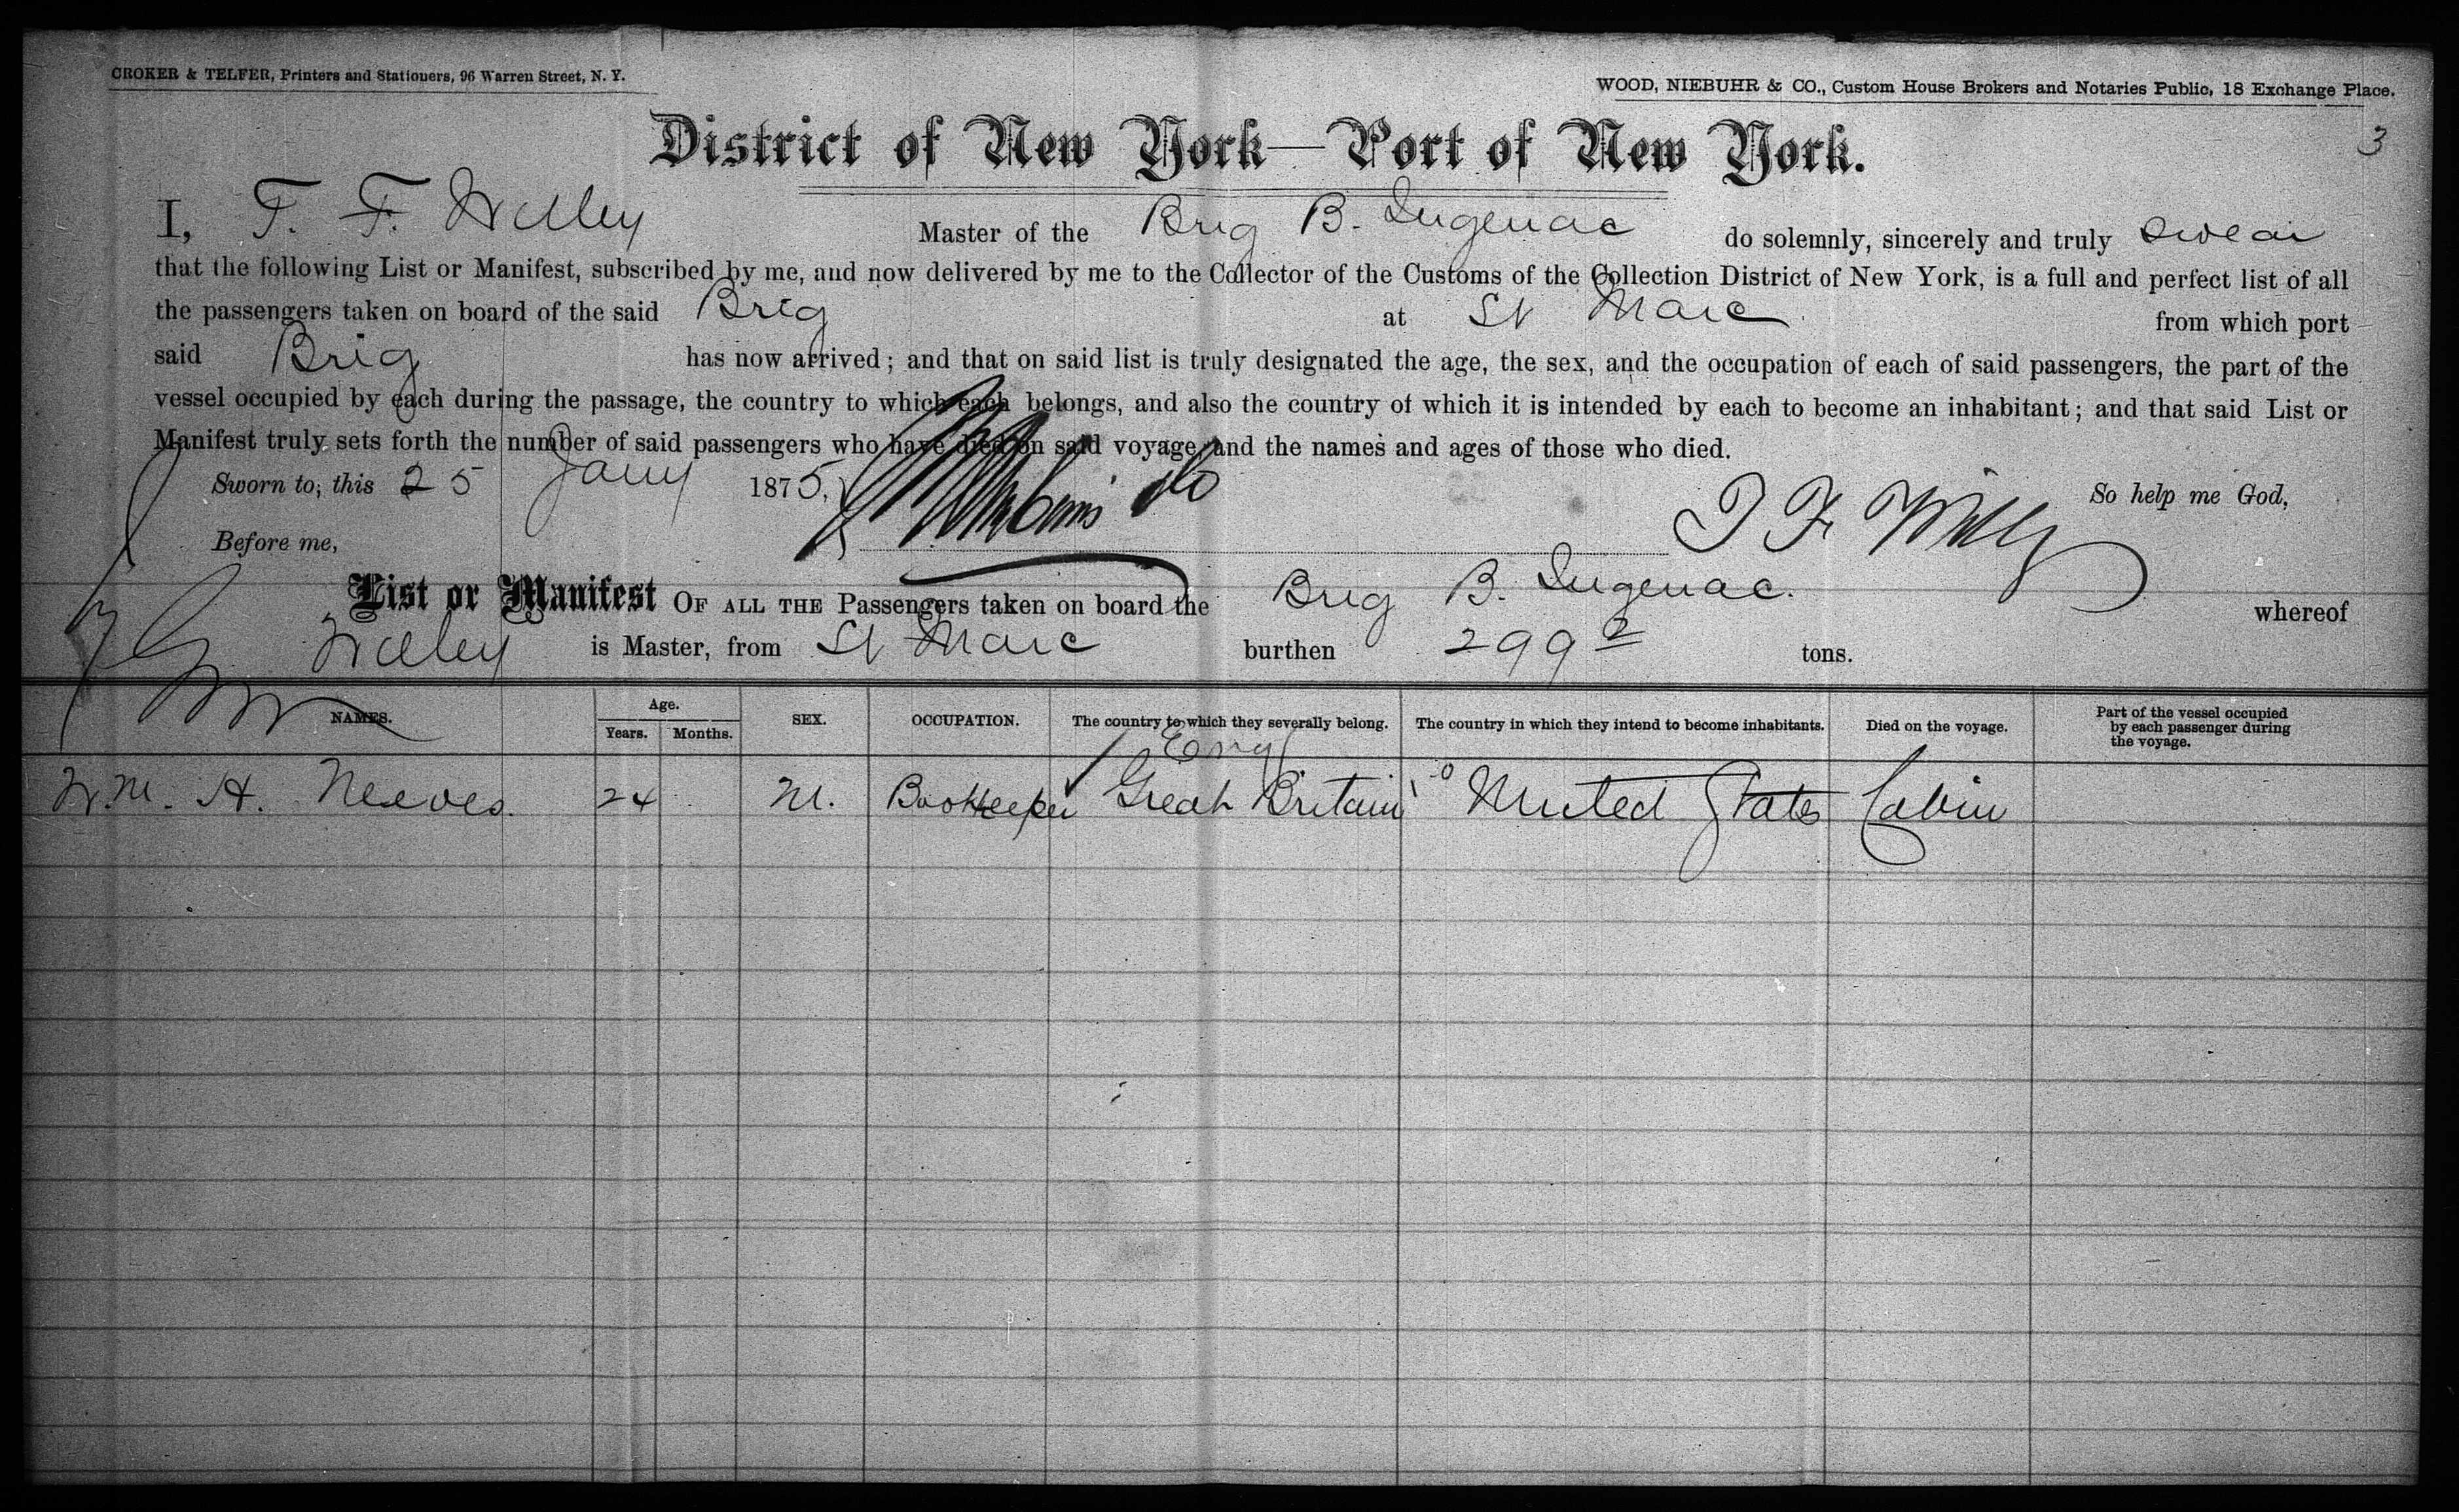 CROKER & TELFER, Printers and Stationers, 96 Warren Street, N. Y.
WOOD, NIEBUHR & CO., Custom House Brokers and Notaries Public, 18 Exchange Place.
3
District of New York—Port of New York.
I, T. F. Willey Master of the Brig B. Inguenac do solemnly, sincerely and truly swear
that the following List or Manifest, subscribed by me, and now delivered by me to the Collector of the Customs of the Collection District of New York, is a full and perfect list of all
the passengers taken on board of the said Brig at St Marc from which port
said Brig has now arrived; and that on said list is truly designated the age, the sex, and the occupation of each of said passengers, the part of the
vessel occupied by each during the passage, the country to which each belongs, and also the country of which it is intended by each to become an inhabitant; and that said List or
Manifest truly sets forth the number of said passengers who have died on said voyage, and the names and ages of those who died.
Sworn to, this 25 Jany 1875, So help me God,
Before me, T F Willey
List or Manifest OF ALL THE Passengers taken on board the Brig B. Inguenac. whereof
Willey is Master, from St Marc burthen 299 2 tons.
NAMES. Age. Years. Months. SEX. OCCUPATION. The country to which they severally belong. The country in which they intend to become inhabitants. Died on the voyage. Part of the vessel occupied by each passenger during the voyage.
Eng
Wm. H. Neeves. 24 M. Bookkeeper Great Britain United States Cabin